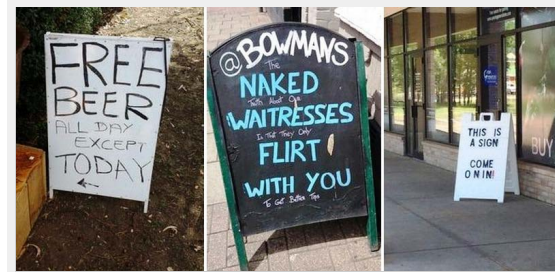 FREE
BEER
ALL DAY
EXCEPT
TODAY
@BOWMANS
The
NAKED
Truth About Our
WAITRESSES
Is That They Only
FLIRT
WITH YOU
To Get Better Tips
THIS IS
A SIGN
COME
ON IN!
BUY